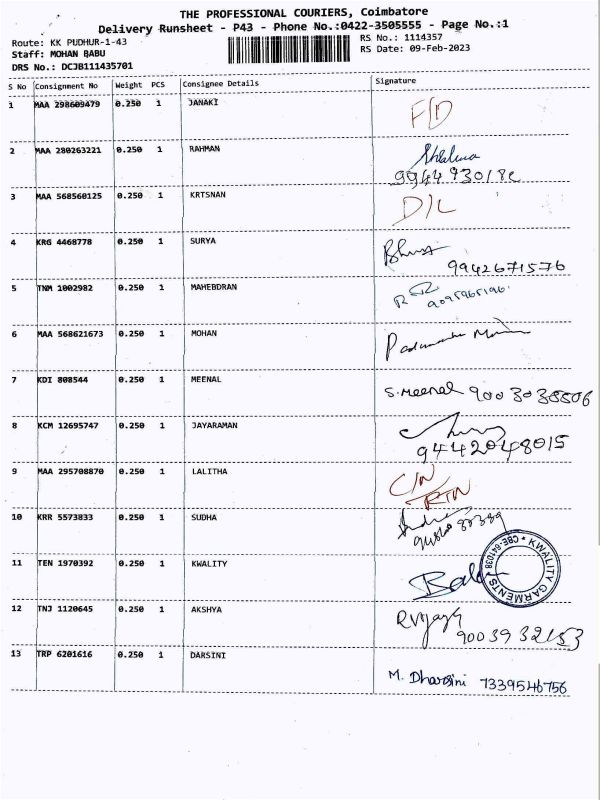 THE PROFESSIONAL COURIERS, Coimbatore
Delivery Runsheet - P43 - Phone No.:0422-3505555 - Page No.:1
Route: KK PUDHUR-1-43
Staff: MOHAN BABU
DRS No.: DCJB111435701
RS No.: 1114357
RS Date: 09-Feb-2023
S No Consignment No Weight PCS Consignee Details Signature
1 MAA 298609479 0.250 1 JANAKI F/D
2 MAA 280263221 0.250 1 RAHMAN
3 MAA 568560125 0.250 1 KRTSNAN D/L
4 KRG 4468778 0.250 1 SURYA
9942671576
5 TNM 1002982 0.250 1 MAHEBDRAN
6 MAA 568621673 0.250 1 MOHAN
7 KDI 808544 0.250 1 MEENAL S.Meenal 9003038506
8 KCM 12695747 0.250 1 JAYARAMAN
9442048015
9 MAA 295708870 0.250 1 LALITHA C/N
RTN
10 KRR 5573833 0.250 1 SUDHA
11 TEN 1970392 0.250 1 KWALITY
KWALITY GARMENTS * CBE-641038 *
12 TNJ 1120645 0.250 1 AKSHYA
9003932153
13 TRP 6201616 0.250 1 DARSINI M. Dharsini 7339546756